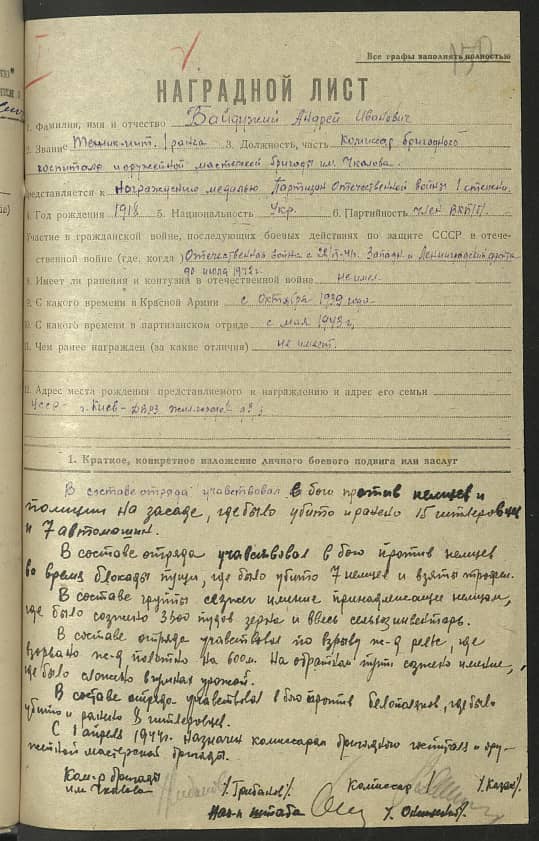 Все графы заполнять полностью
150
НАГРАДНОЙ ЛИСТ
1. Фамилия, имя и отчество Байдужий Андрей Иванович
2. Звание Техник-инт. 1 ранга 3. Должность, часть Комиссар бригадного
госпиталя и оружейной мастерской бригады им. Чкалова.
представляется к Награждению медалью Партизан Отечественной войны 1 степени.
4. Год рождения 1918 5. Национальность Укр. 6. Партийность член ВКП/б/.
Участие в гражданской войне, последующих боевых действиях по защите СССР в отече-
ственной войне (где, когда) Отечественная война с Западн и Ленинградский фронта
до июля 1942г.
8. Имеет ли ранения и контузия в отечественной войне не имел
9. С какого времени в Красной Армии с Октября 1939 года
10. С какого времени в партизанском отряде с мая 1943 г.
11. Чем ранее награжден (за какие отличия) не имеет.
12. Адрес места рождения представляемого к награждению и адрес его семьи
УССР г. Киев-
1. Краткое, конкретное изложение личного боевого подвига или заслуг
В составе отряда учавствовал в бою против немцев и
полиции на засаде, где было убито и ранено 15 гитлеровцев
и 7 автомашин.
В составе отряда учавствовал в бою против немцев
во время блокады пущи, где было убито 7 немцев и взяты трофеи.
В составе группы сжег имение принадлежащее немцам,
где было сожжено 3500 пудов зерна и ввесь сельхозинвентарь.
В составе отряда учавствовал по взрыву ж-д рельс, где
взорвано ж-д полотно на 600м. На обратном пути сожено имение,
где было сложено урожай.
В составе отряда учавствовал в бою против белополяков, где было
убито и ранено 8 гитлеровцев.
С 1 апреля 1944г. Назначен комиссаром бригадного госпиталя и ору-
жейной мастерской бригады.
Ком-р бригады
им. Чкалова /Грибанов/.
Комиссар /Казак/.
Нач-к штаба